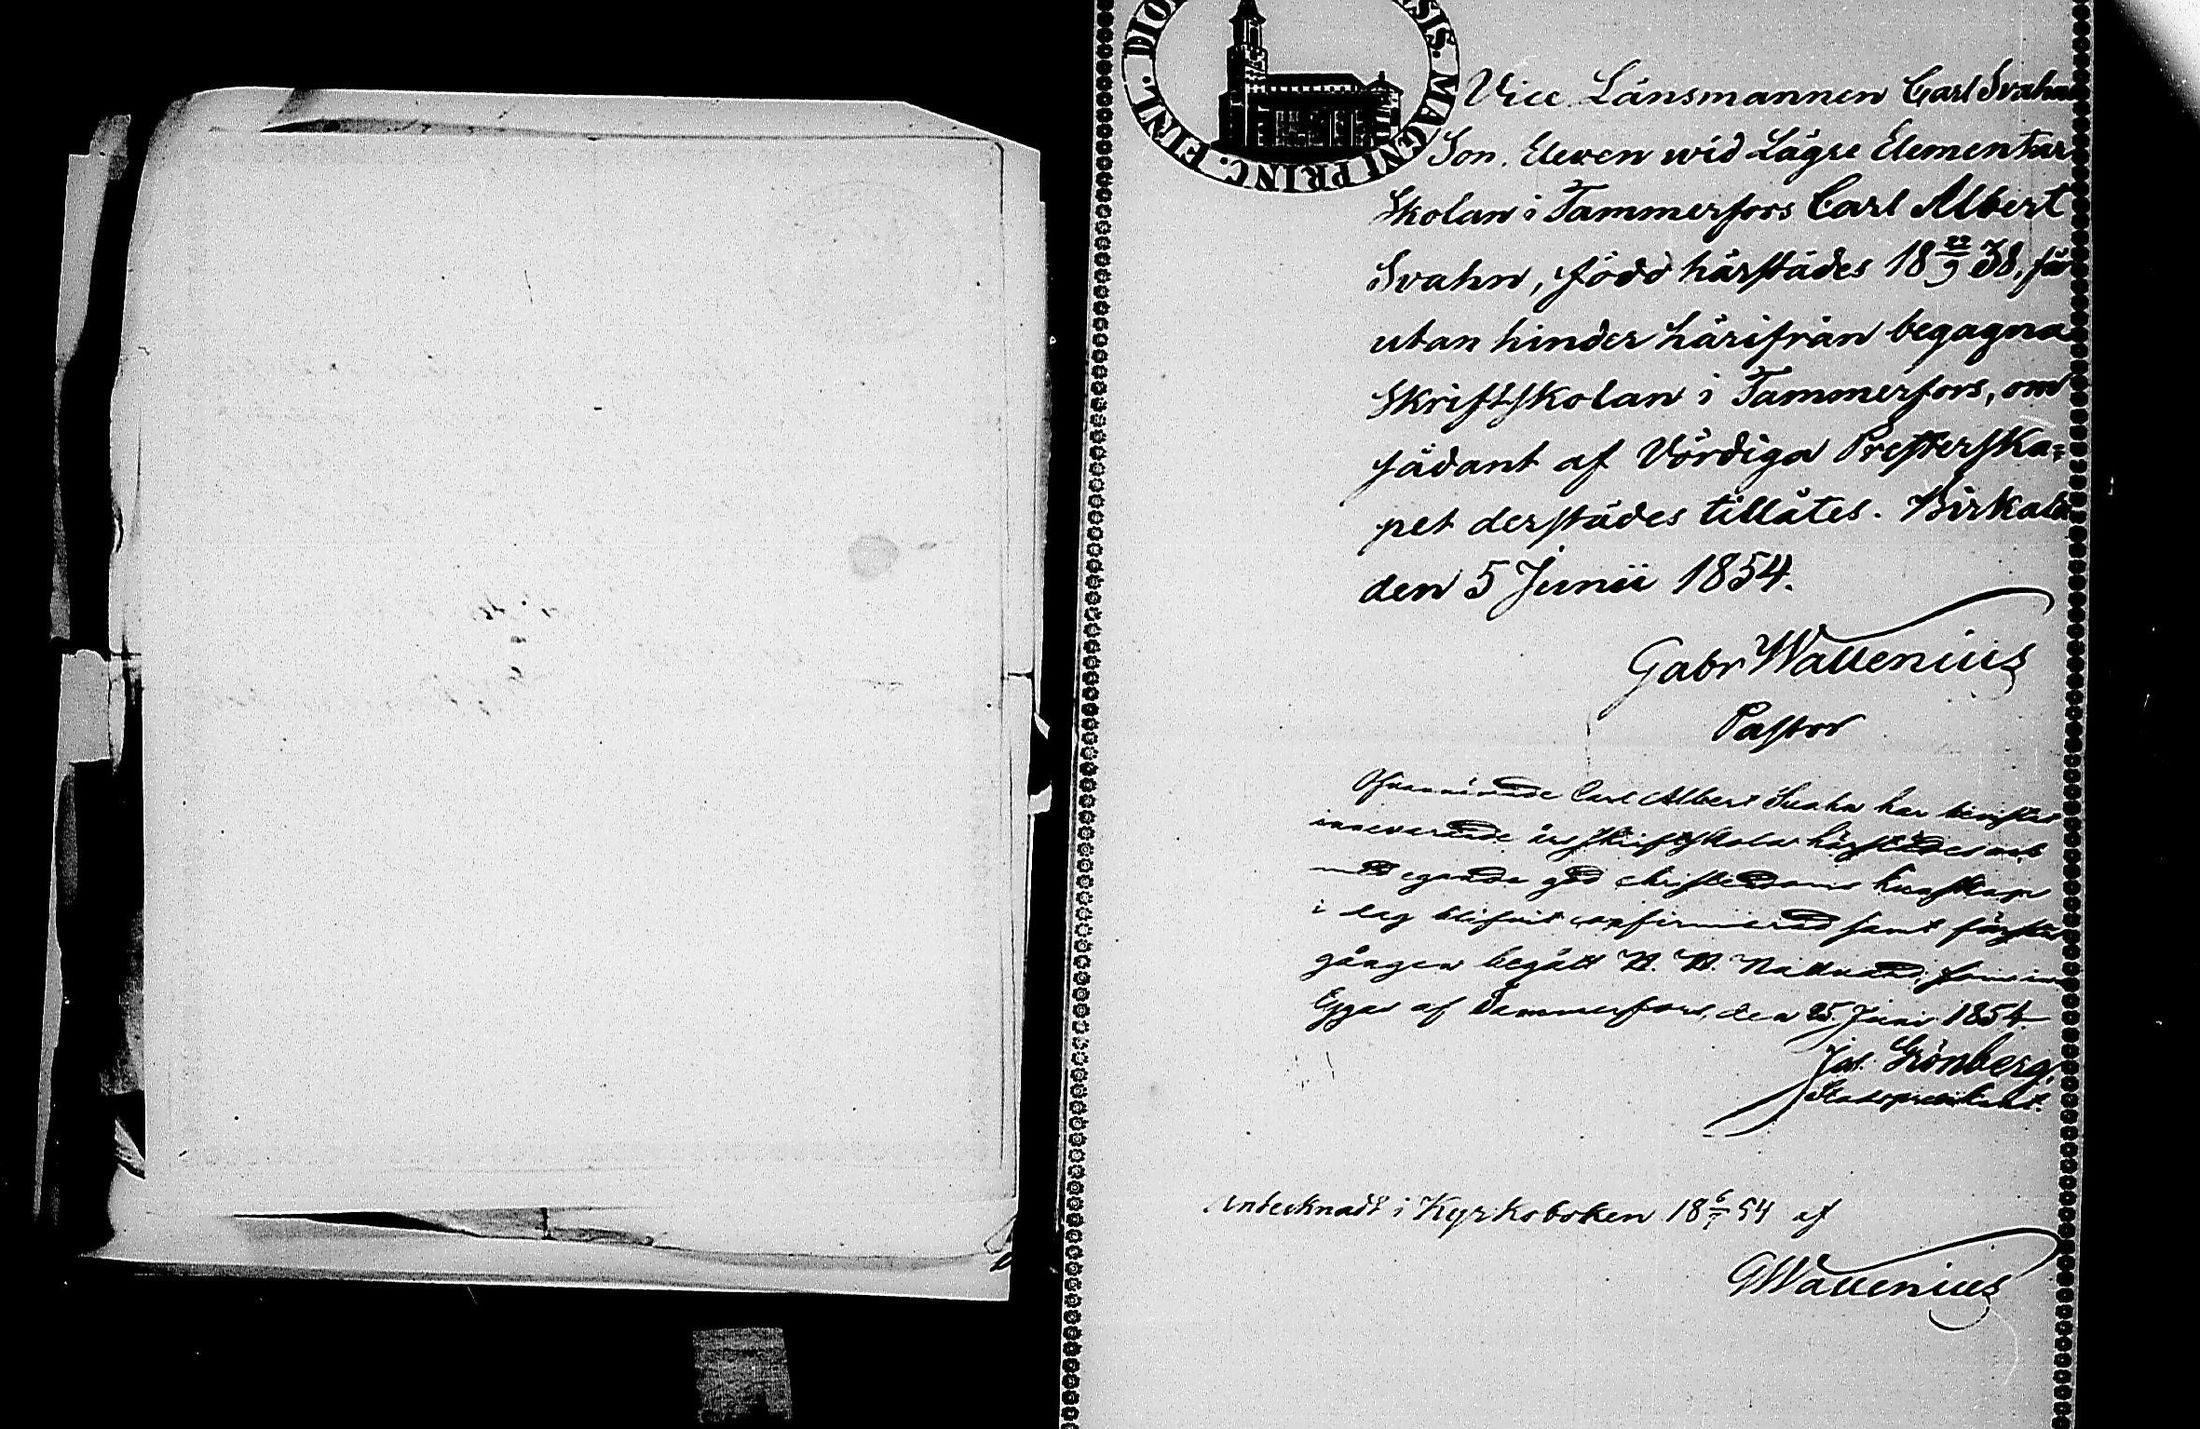 SIS. MAGNI PRINC. FINL. DIO
Vice Länsmannen Carl Svahns
Son, Eleven wid Lägre Elementar
Skolan i Tammerfors Carl Albert
Svahn, född härstädes 18 22/9 38, får
utan hinder härifrån begagna
Skriftskolan i Tammerfors, om
sådant af Vördiga Presterska=
pet derstädes tillåtes. Birkala
den 5 Junii 1854.
Gabr Wallenius
Pastor
Ofvannämnde Carl Albert Svahn har bevistat
innevarande års Skriftskola härstädes och
med egande god christendoms kunskap
i dag blifvit confirmerad samt första
gången begått H. H. Nattvard,
af Tammerfors, den 25 Juni 1854.
Grönberg,
Stadspredikant.
Antecknadt i Kyrkoboken 18 6/7 54 af
GWallenius